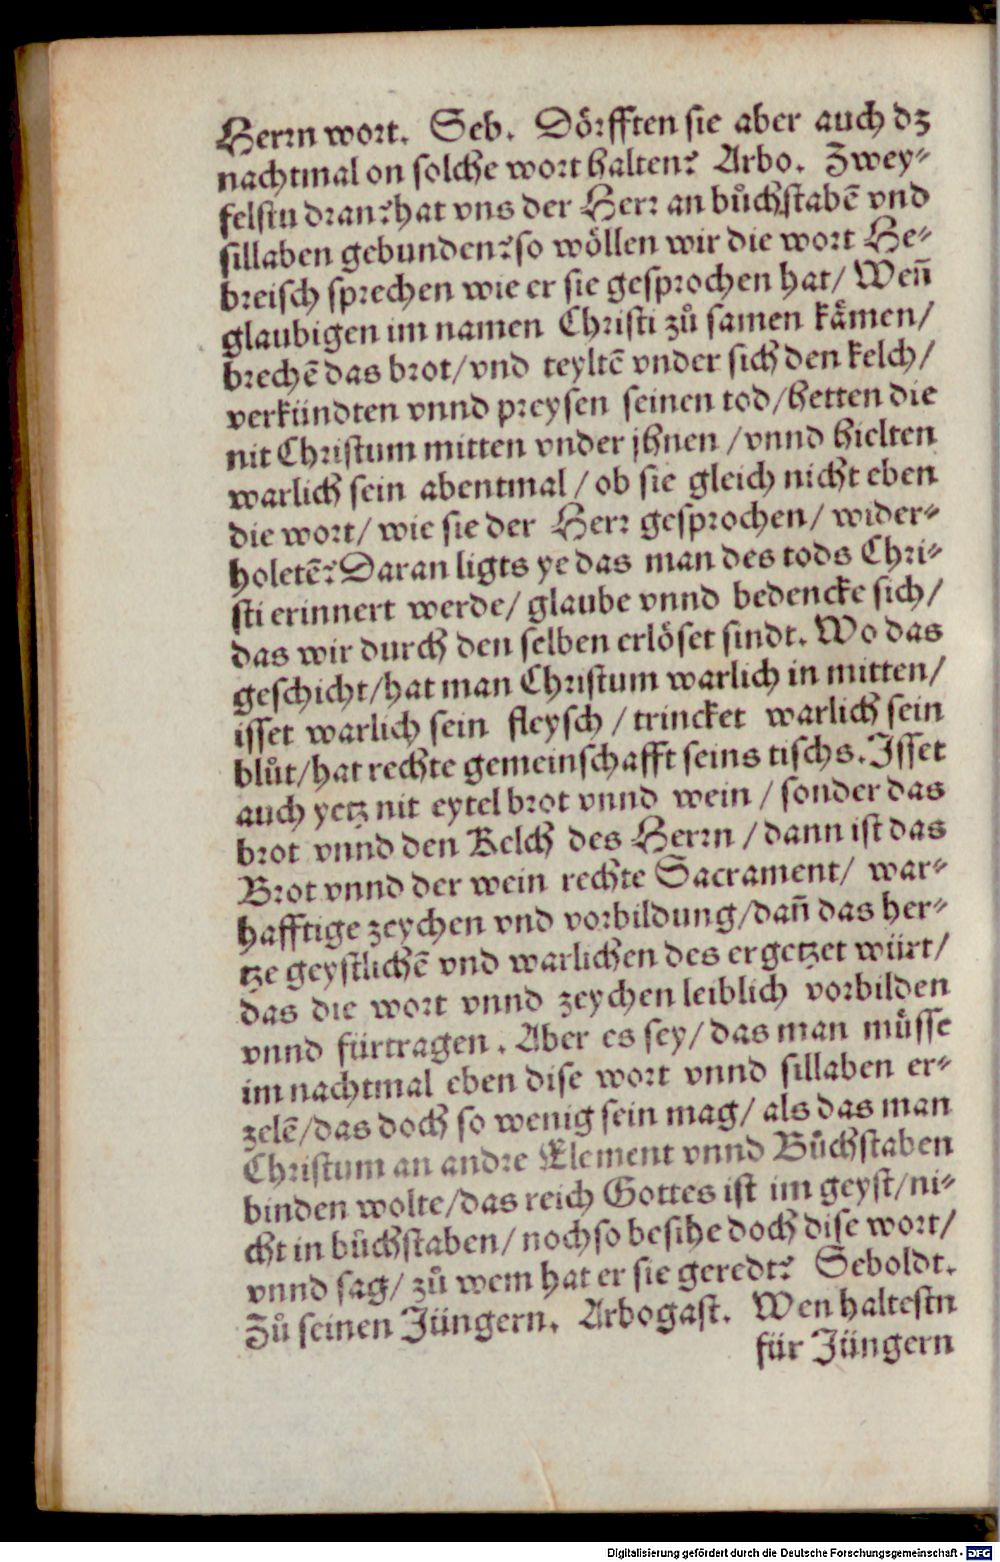 Herrn wort. Seb. Dörfften sie aber auch dz
nachtmal on solche wort halten? Arbo. Zwey⸗
felstu dran? hat vns der Herr an bůchstabē vnd
sillaben gebunden? so wöllen wir die wort He⸗
breisch sprechen wie er sie gesprochen hat/ Weñ
glaubigen im namen Christi zů samen kämen/
brechē das brot/ vnd teyltē vnder sich den kelch/
verkündten vnnd preysen seinen tod/ hetten die
nit Christum mitten vnder jhnen / vnnd hielten
warlich sein abentmal / ob sie gleich nicht eben
die wort/ wie sie der Herr gesprochen/ wider⸗
holetē? Daran ligts ye das man des tods Chri⸗
sti erinnert werde/ glaube vnnd bedencke sich/
das wir durch den selben erlöset sindt. Wo das
geschicht/ hat man Christum warlich in mitten/
isset warlich sein fleysch / trincket warlich sein
blůt/ hat rechte gemeinschafft seins tischs. Isset
auch yetz nit eytel brot vnnd wein / sonder das
brot vnnd den Kelch des Herrn / dann ist das
Brot vnnd der wein rechte Sacrament/ war⸗
hafftige zeychen vnd vorbildung/ dañ das her⸗
tze geystlichē vnd warlichen des ergetzet würt/
das die wort vnnd zeychen leiblich vorbilden
vnnd fürtragen. Aber es sey/ das man müsse
im nachtmal eben dise wort vnnd sillaben er⸗
zelē/ das doch so wenig sein mag/ als das man
Christum an andre Element vnnd Bůchstaben
binden wolte/ das reich Gottes ist im geyst/ ni⸗
cht in bůchstaben/ noch so besihe doch dise wort/
vnnd sag/ zů wem hat er sie geredt? Seboldt.
Zů seinen Jüngern. Arbogast. Wen haltestn
für Jüngern
Digitalisierung gefördert durch die Deutsche Forschungsgemeinschaft - DFG